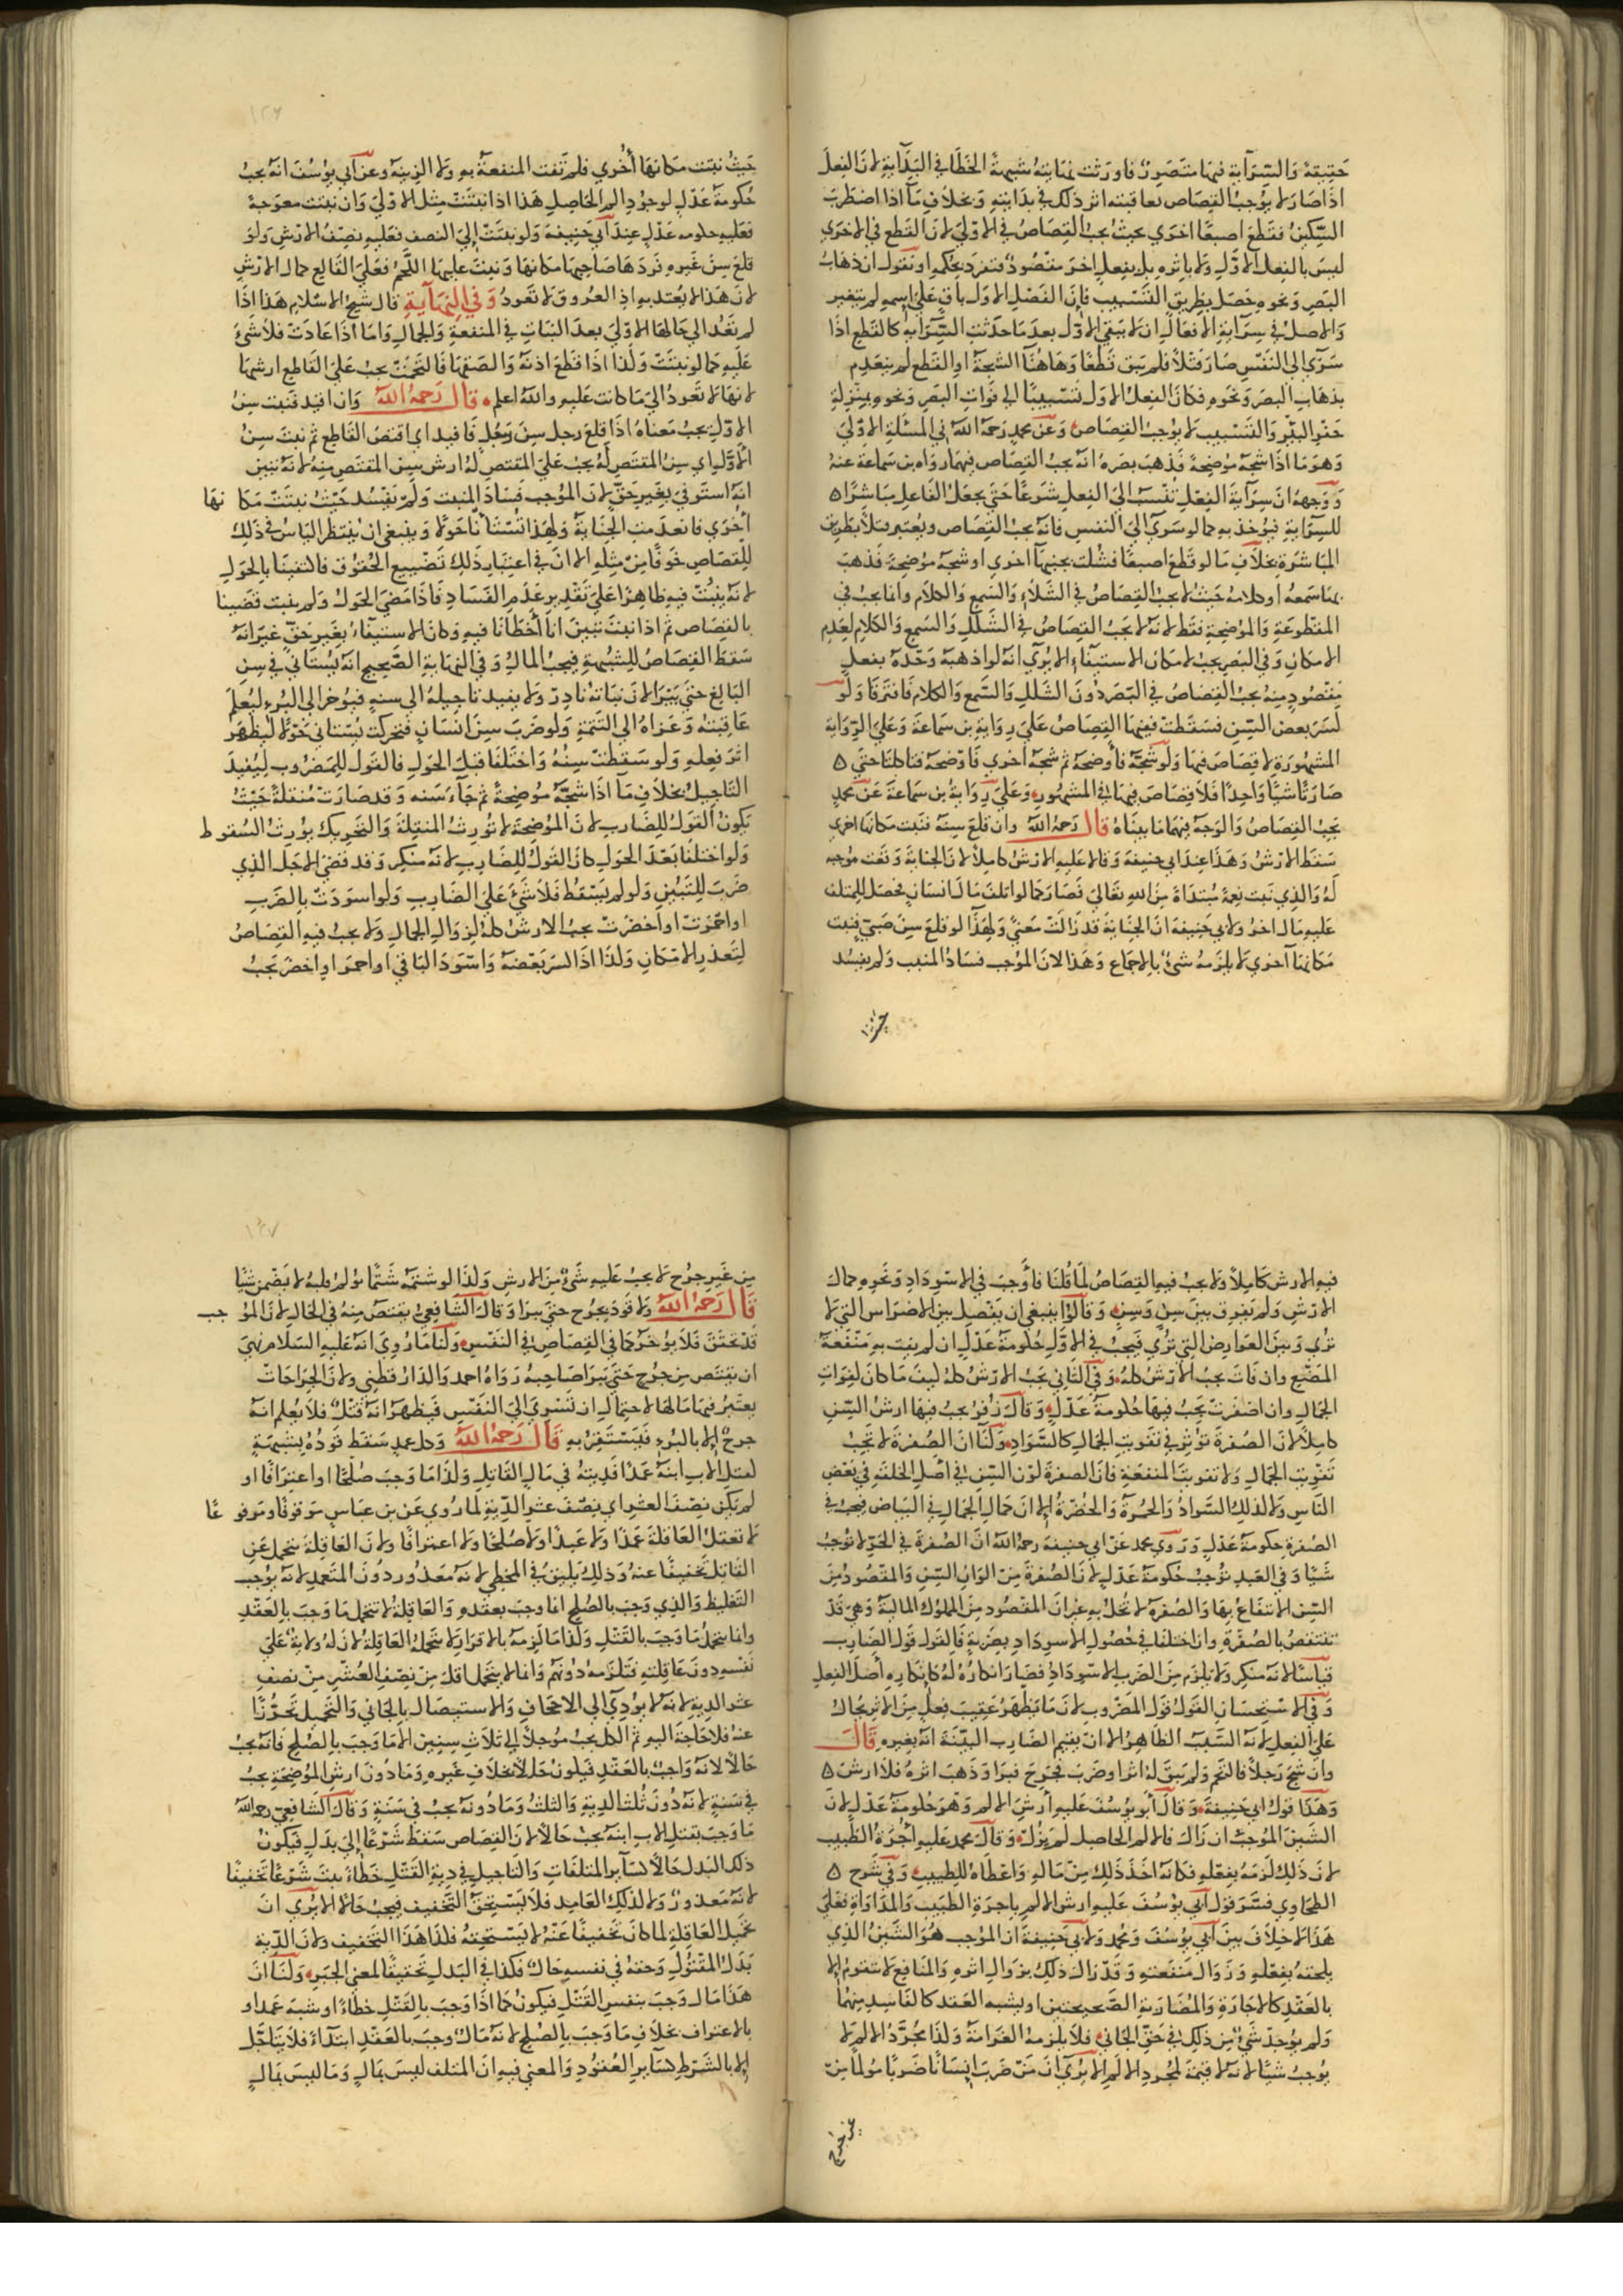 حقيقة والسراية فيها متصور فاورثت نهايته شبهة الخطا في البداية لان الفعل
اذا صار لا يوجب القصاص بعاقبته اثر ذلك في بدايته وبخلاف ما اذا اضطرب
السكين فقطع اصبعا اخرى حيث يجب القصاص في الاولى لان القطع في الاخرى
ليس بالفعل الاول ولا باثره بل بفعل اخر مقصود فتفرد بحكمه او نقول ان ذهاب
البصر ونحوه حصل بطريق التسبيب فان الفصل الاول باق على اسمه لم يتغير
والاصل في سراية الافعال ان لا يبقى الاول بعد ما حدثت السراية كالقطع اذا
سرى الى النفس صار قتلا فلم يبق قطعا وهاهنا الشجة او القطع لم ينعدم
بذهاب البصر ونحوه فكان الفعل الاول تسبيبا الى فوات البصر ونحوه بمنزلة
حفر البئر والتسبيب لا يوجب القصاص وعن محمد رحمه الله في المسئلة الاولى
وهو ما اذا شجه موضحة فذهب بصره انه يجب القصاص فيهما رواه بن سماعة عنه
ووجهه ان سراية الفعل تنسب الى الفعل شرعا حتى يجعل الفاعل مباشرا
للسراية فيوخذ به كما لو سرى الى النفس فانه يجب القصاص ويعتبر قتلا بطريق
المباشرة بخلاف ما لو قطع اصبعا فشلت بجنبها اخرى او شجه موضحة فذهب
بها سمعه او كلامه حيث لا يجب القصاص في الشلل والسمع والكلام وانما يجب في
المقطوعة والموضحة فقط لانه لا يجب القصاص في الشلل والسمع والكلام لعدم
الامكان وفي البصر يجب لامكان الاستيفاء الا يرى انه لو اذهبه وحده بفعل
مقصود منه يجب القصاص في البصر دون الشلل والسمع والكلام فافترقا ولو
كسر بعض السن فسقطت ففيها القصاص على رواية بن سماعة وعلى الرواية
المشهورة لا قصاص فيها ولو شجه فاوضحه ثم شجه اخرى فاوضحه فتاكلتا حتى
صارتا شيا واحدا فلا قصاص فيها في المشهور وعلى رواية بن سماعة عن محمد
يجب القصاص والوجه فيهما ما بيناه قال رحمه الله وان قلع سنه فنبت مكانها اخرى
سقط الارش وهذا عند ابي حنيفة وقالا عليه الارش كاملا لان الجناية وقعت موجبة
له والذي نبت نعمة مبتداة من الله تعالى فصار كما لو اتلف مال انسان فحصل للمتلف
عليه مال اخر ولابي حنيفة ان الجناية قد زالت معنى ولهذا لو قلع سن صبي فنبت
مكانها اخرى لا يلزمه شئ بالاجماع وهذا لان الموجب فساد المنبت ولم يفسد
حيث
١٢٦
حيث نبتت مكانها اخرى فلم تفت المنفعة به ولا الزينة وعن ابي يوسف انه يجب
حكومة عدل لوجود الم الحاصل هذا اذا نبتت مثل الاولى وان نبتت معوجة
فعليه حكومه عدل عند ابي حنيفة ولو نبتت الى النصف فعليه نصف الارش ولو
قلع سن غيره فردها صاحبها مكانها ونبت عليها اللحم فعلى القالع كمال الارش
لان هذا لا يعتد به اذ العروق لا تعود وفي النهاية قال شيخ الاسلام هذا اذا
لم تعد الى حالها الاولى بعد النبات في المنفعة والجمال واما اذا عادت فلا شئ
عليه كما لو نبتت ولذا اذا قطع اذنه والصقها فالتحمت يجب على القاطع ارشها
لانها لا تعود الى ما كانت عليه والله اعلم قال رحمه الله وان اقيد فنبت سن
الاول يجب معناه اذا قلع رجل سن رجل فاقيد اي اقتص القاطع ثم نبت سن
الاول اي سن المقتص له يجب على المقتص له ارش سن المقتص منه لانه تبين
انه استوفى بغير حق لان الموجب فساد المنبت ولم يفسد حيث نبتت مكانها
اخرى فانعدمت الجناية ولهذا تستانا حولا وينبغي ان ينتظر الياس في ذلك
للقصاص خوفا من مثله الا ان في اعتبار ذلك تضييع الحقوق فاكتفينا بالحول
لانه ينبت فيه ظاهرا على تقدير عدم الفساد فاذا مضى الحول ولم ينبت قضينا
بالقصاص ثم اذا نبت تبين انا اخطانا فيه وكان الاستيفاء بغير حق غير انه
سقط القصاص للشبهة فيجب المال وفي النهاية الصحيح انه يستاني في سن
البالغ حتى يبرا لان نباته نادر ولا يفيد تاجيله الى سنه فيوخر الى البرء ليعلم
عاقبته وعزاه الى التتمة ولو ضرب سن انسان فتحركت يستاني حولا ليظهر
اثر فعله ولو سقطت سنه واختلفا قبل الحول فالقول للمضروب ليفيد
التاجيل بخلاف ما اذا شجه موضحة ثم جاء سنه وقد صارت منقلة حيث
يكون القول للضارب لان الموضحة لا تورث المنقلة والتحريك يورث السقوط
ولو اختلفا بعد الحول كان القول للضارب لانه منكر وقد مضى الاجل الذي
ضرب للتبين ولو لم يسقط فلا شئ على الضارب ولو اسودت بالضرب
او احمرت او اخضرت يجب الارش كله لزوال الجمال ولا يجب فيه القصاص
لتعذر الامكان ولذا اذا كسر بعضه واسود الباقي او احمر او اخضر يجب
فيه الارش كاملا ولا يجب فيه القصاص لما قلنا فاوجب في الاسوداد ونحوه كمال
الارش ولم يفرق بين سن وسن وقالوا ينبغي ان يفصل بين الاضراس التي لا
ترى وبين العوارض التي ترى فيجب في الاول حكومة عدل ان لم يفت به منفعة
المضغ وان فات يجب الارش كله وفي الثاني يجب الارش كله كيف ما كان لفوات
الجمال وان اصفرت يجب فيها حكومة عدل وقال زفر يجب فيها ارش السن
كاملا لان الصفرة توثر في تفويت الجمال كالسواد ولنا ان الصفرة لا تجب
تفويت الجمال ولا تفويت المنفعة فان الصفرة لون السن في اصل الخلقة في بعض
الناس ولا لذلك السواد والحمرة والخضرة الا ان كمال الجمال في البياض فيجب في
الصفرة حكومة عدل وروى محمد عن ابي حنيفة رحمه الله ان الصفرة في الحر لا توجب
شيا وفي العبد توجب حكومة عدل لان الصفرة من الوان السن والمقصود من
السن الانتفاع بها والصفرة لا تخل به غير ان المقصود من المملوك المالية وهي قد
تنتقص بالصفرة وان اختلفا في حصول الاسوداد بضربه فالقول قول الضارب
قياسا لانه منكر ولا يلزم من الضرب الاسوداد فصار انكاره له كانكاره اصل الفعل
وفي الاستحسان القول قول المضروب لان ما يظهر عقيب فعل من الاثر يحال
على الفعل لانه السبب الظاهر الا ان يقيم الضارب البينة انه بغيره قال
وان شج رجلا فالتحم ولم يبق له اثر او ضرب فجرح فبرا وذهب اثره فلا ارش
وهذا قول ابي حنيفة وقال ابو يوسف عليه ارش الالم وهو حكومة عدل لان
الشين الموجب ان زال فالالم الحاصل لم يزل وقال محمد عليه اجرة الطبيب
لان ذلك لزمه بفعله فكانه اخذ ذلك من ماله واعطاه للطبيب وفي شرح
الطحاوي فسر قول ابي يوسف عليه ارش الالم باجرة الطبيب والمداواة فعلى
هذا لا خلاف بين ابي يوسف ومحمد ولابي حنيفة ان الموجب هو الشين الذي
يلحقه بفعله وزوال منفعته وقد زال ذلك بزوال اثره والمنافع لا تتقوم الا
بالعقد كالاجارة والمضاربة الصحيحتين او بشبه العقد كالفاسد منهما
ولم يوجد شئ من ذلك في حق الجاني فلا يلزمه الغرامة ولذا مجرد الالم لا
يوجب شيا لانه لا قيمة لمجرد الالم الا يرى ان من ضرب انسانا ضربا مولما من
غير جرح
١٢٧
من غير جرح لا يجب عليه شئ من الارش ولذا لو شتمه شتما يولم قلبه لا يضمن شيا
قال رحمه الله ولا قود بجرح حتى يبرا وقال الشافعي يقتص منه في الحال لان الموجب
قد تحقق فلا يوخر كما في القصاص في النفس ولنا ما روي انه عليه السلام نهى
ان يقتص من جرح حتى يبرا صاحبه رواه احمد والدارقطني ولان الجراحات
يعتبر فيها مالها لاحتمال ان تسري الى النفس فيظهر انه قتل فلا يعلم انه
جرح الا بالبرء فيستقر به قال رحمه الله وكل عمد سقط قوده بشبهة
لقتل الاب ابنه عمدا فديته في مال القاتل ولذا ما وجب صلحا او اعترافا او
لم يكن نصف العشر اي نصف عشر الدية لما روي عن بن عباس موقوفا ومرفوعا
لا تعقل العاقلة عمدا ولا عبدا ولا صلحا ولا اعترافا ولان العاقلة تتحمل عن
القاتل تخفيفا عنه وذلك يليق في المخطي لانه معذور دون المتعمد لانه يوجب
التغليظ والذي وجب بالصلح انما وجب بعقده والعاقلة لا تتحمل ما وجب بالعقد
وانما تتحمل ما وجب بالقتل ولذا ما لزمه بالاقرار لا تتحمله العاقلة لان له ولاية على
نفسه دون عاقلته فتلزمه دونهم وانما لا يتحمل اقل من نصف العشر من نصف
عشر الدية لانه لا يودي الى الاجحاف والاستيصال بالجاني والتحميل تحرزا
عنه فلا حاجة اليه ثم الكل يجب موجلا الى ثلاث سنين الا ما وجب بالصلح فانه يجب
حالا لانه واجب بالعقد فيكون حالا بخلاف غيره وما دون ارش الموضحة يجب
في سنة لانه دون ثلث الدية والثلث وما دونه يجب في سنة وقال الشافعي رحمه الله
ما وجب بقتل الاب ابنه يجب حالا لان القصاص سقط شرعا الى بدل فيكون
ذلك البدل حالا كسائر المتلفات والتاجيل في دية القتل خطاء ثبت شرعا تخفيفا
لانه معذور ولا لذلك العامد فلا يستحق التخفيف فيجب حالا الا يرى ان
تحمل العاقلة لما كان تخفيفا عنه لا يستحقه فلذا هذا التخفيف ولان الدية
بدل المقتول وحقه في نفسه حال فكذا في البدل تحقيقا لمعنى الجبر ولنا ان
هذا مال وجب بنفس القتل فيكون كما اذا وجب بالقتل خطاء او شبه عمد او
بالاعتراف بخلاف ما وجب بالصلح لانه مال وجب بالعقد ابتداء فلا يتاجل
الا بالشرط كسائر العقود والمعنى فيه ان المتلف ليس بمال وما ليس بمال